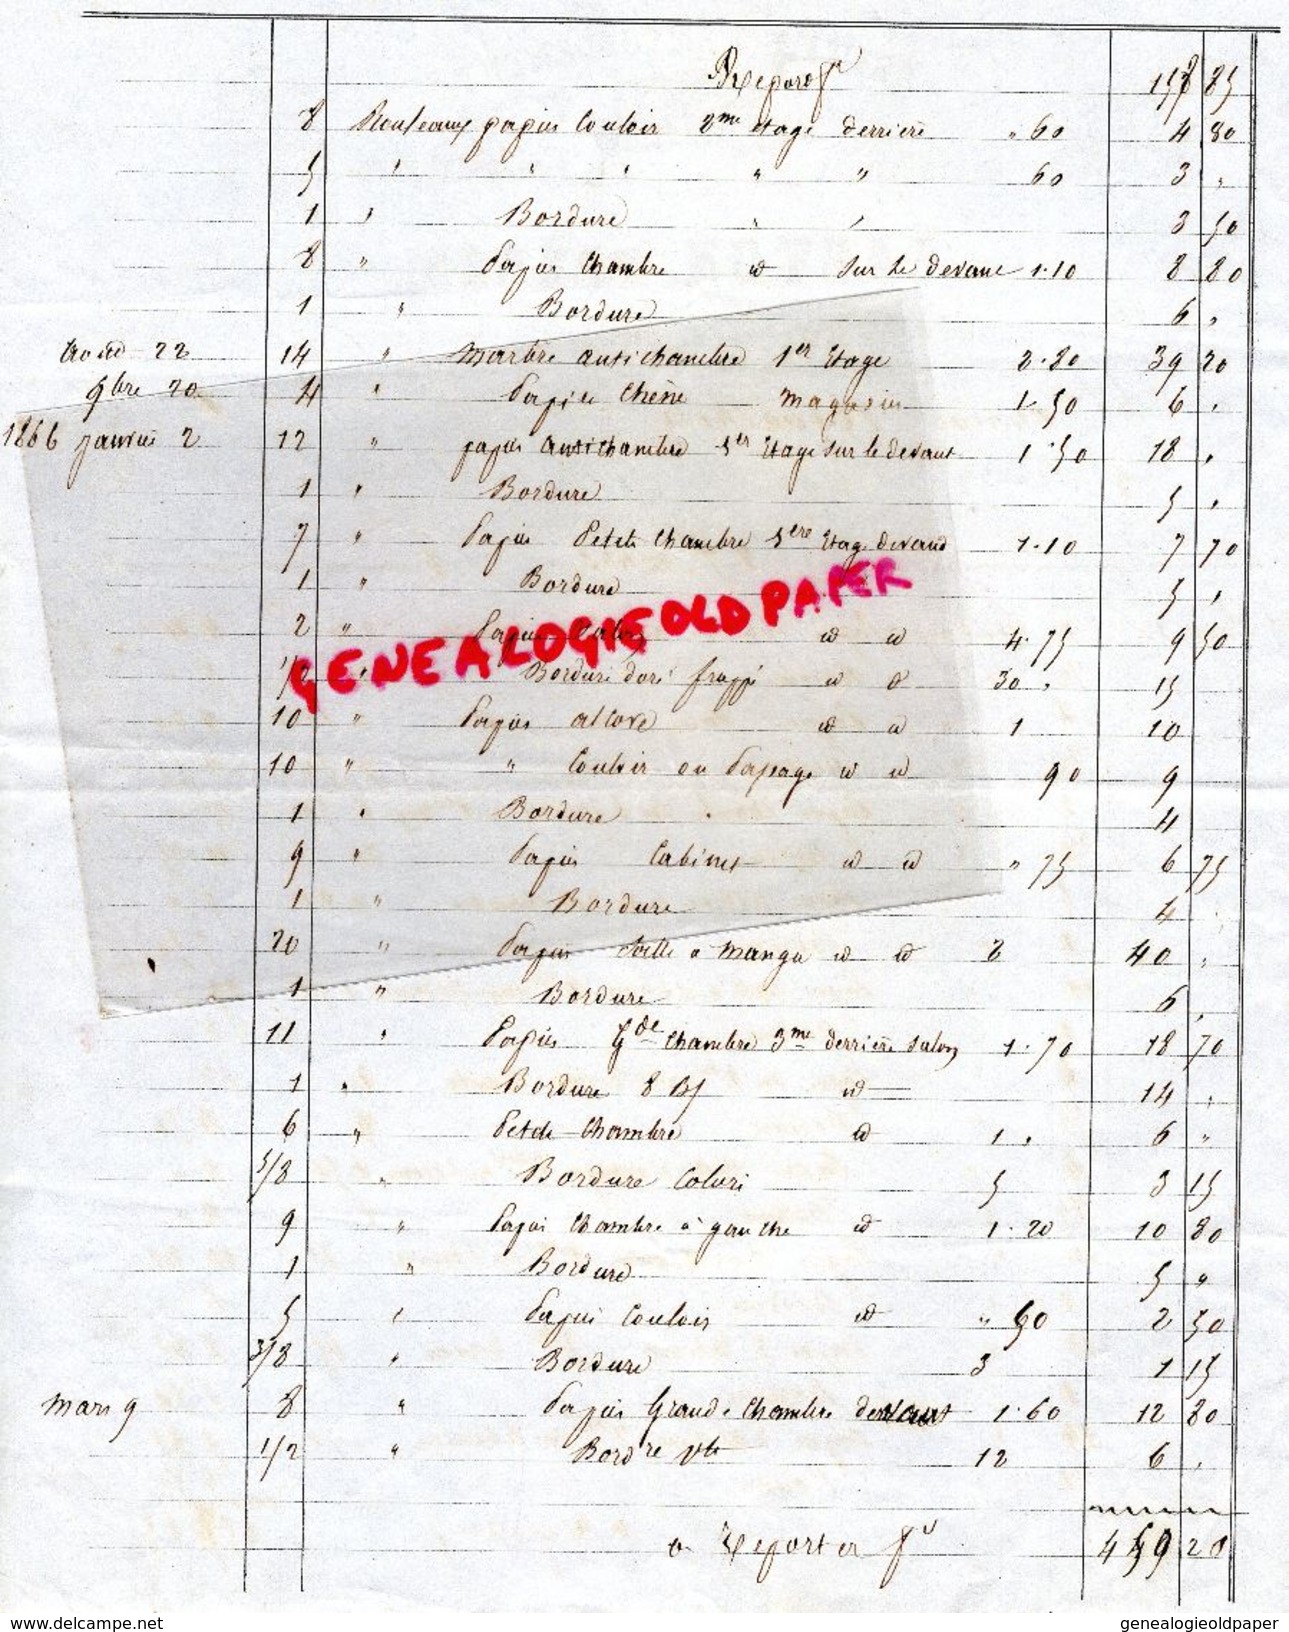 Report fs 158 85
8 Rouleaux papier Couloir 2me étage derrière " 60 4 80
5 " " " " " 60 3 "
1 " Bordure " " 3 50
8 " Papier Chambre id sur le devant 1.10 8 80
1 " Bordure 6 "
22 14 " Marbre antichambre 1er Etage 2.80 39 20
9bre 20 4 " Papier Chêne Magasin 1.50 6 "
1866 janvier 2 12 " papier antichambre 1er Etage sur le devant 1.50 18 "
1 " Bordure 5 "
7 " Papier Petite Chambre 1ere Etage devand 1.10 7 70
1 " Bordure 5 "
2 " Papier Salon id id 4.75 9 50
1/2 " Bordure doré frappé id id 30 " 15
10 " Papier alcove id id 1 10
10 " " Couloir ou Passage id id 90 9
1 " Bordure 4
9 " Papier Cabinet id id " 75 6 75
1 " Bordure 4
20 " Papier Salle a Manger id id 2 40 "
1 " Bordure 6 "
11 " Papier Gde Chambre 3me derrière salon 1.70 18 70
1 " Bordure 8 Bs id 14 "
6 " Petite Chambre id 1 " 6 "
5/8 " Bordure Coloris 5 3 15
9 " Papier Chambre à gauche id 1.20 10 80
1 " Bordure 5 "
5 " Papier Couloir id " 50 2 50
3/8 " Bordure 3 1 15
Mars 9 8 " Papier Grande Chambre devant 1.60 12 80
1/2 " Bordre Vte 12 6 "
a Reporter fs 459 20
GENEALOGIE OLD PAPER
www.delcampe.net genealogieoldpaper